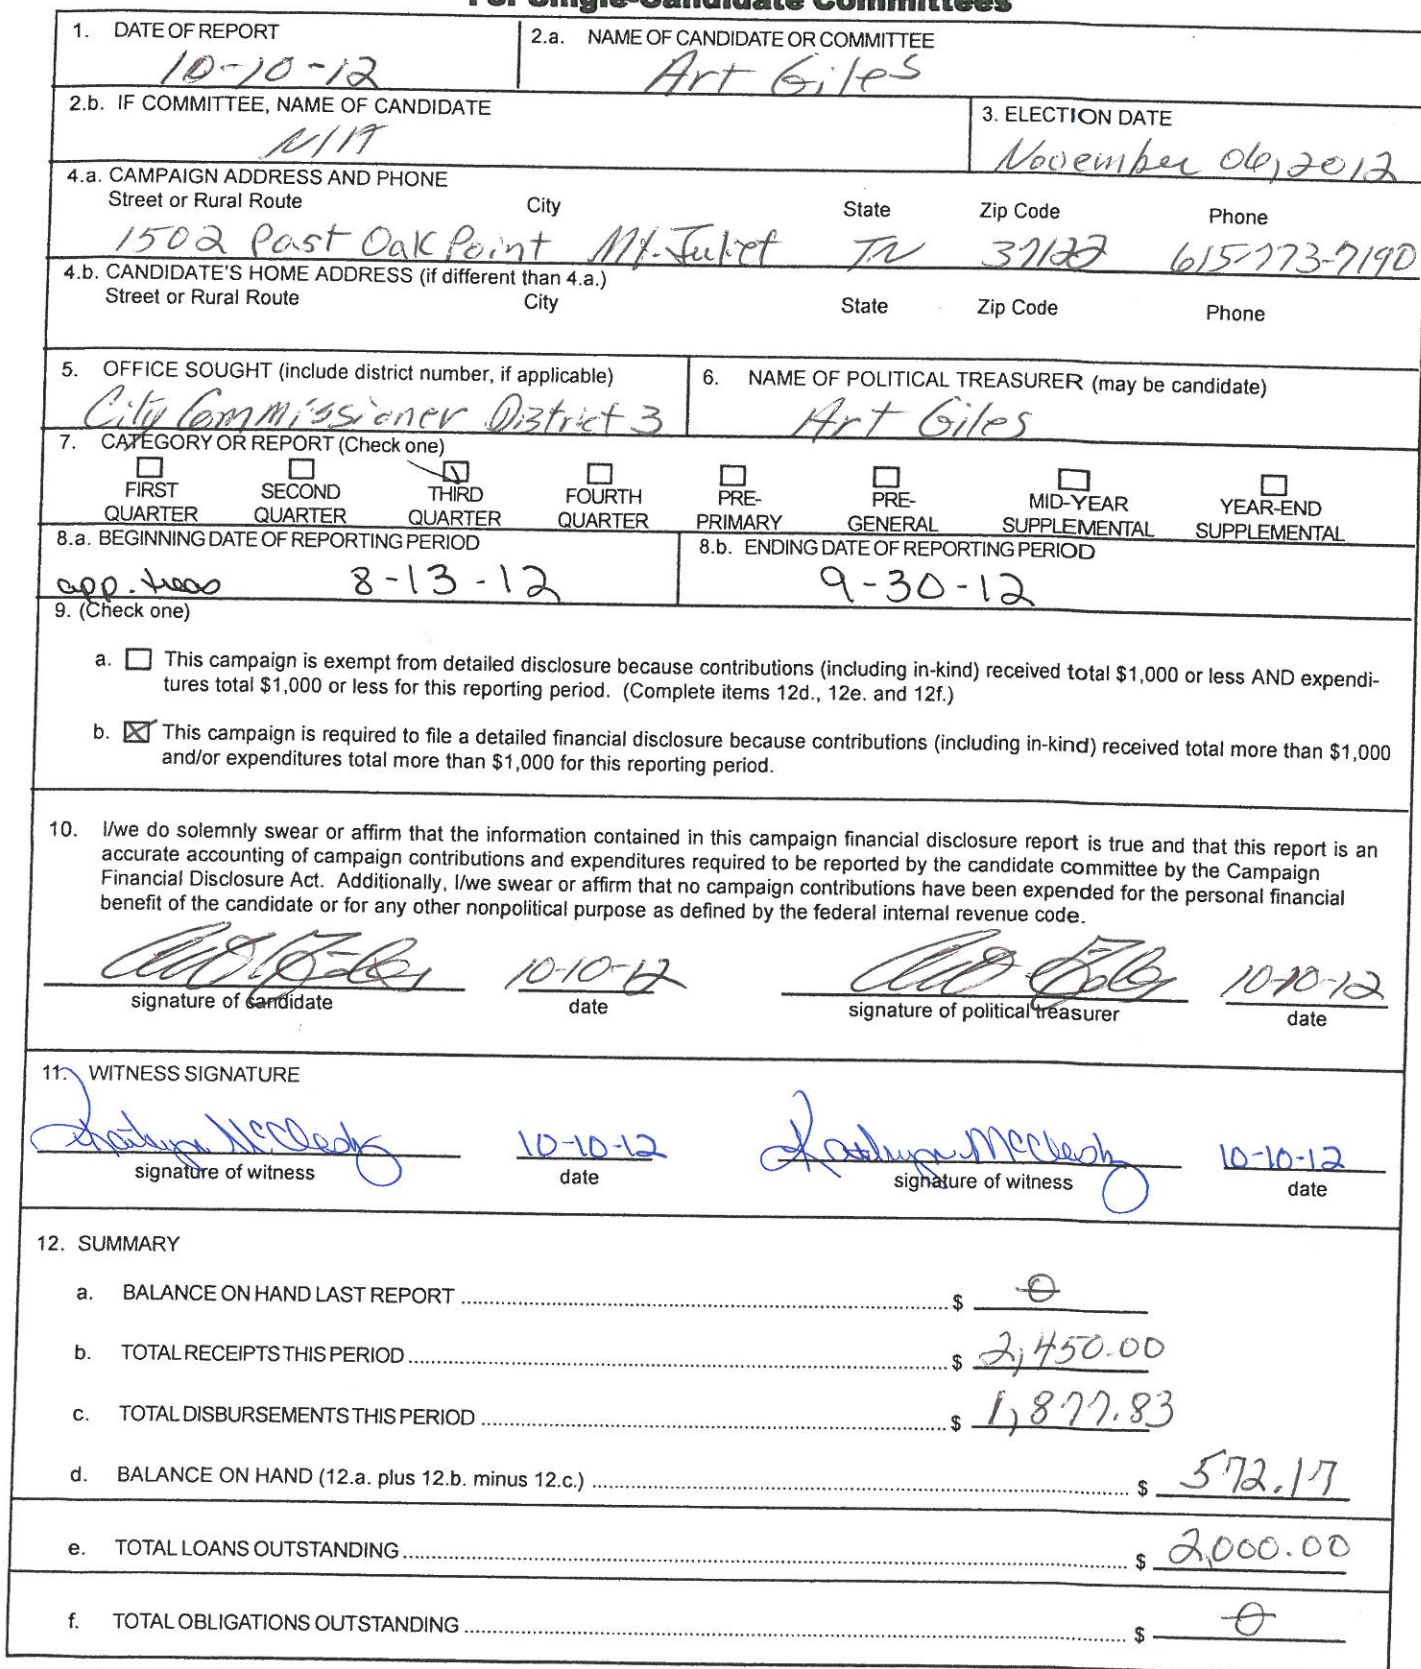 For Single-Candidate Committees
1. DATE OF REPORT
10-10-12
2.a. NAME OF CANDIDATE OR COMMITTEE
Art Giles
2.b. IF COMMITTEE, NAME OF CANDIDATE
N/A
3. ELECTION DATE
November 06, 2012
4.a. CAMPAIGN ADDRESS AND PHONE
Street or Rural Route City State Zip Code Phone
1502 Post Oak Point Mt. Juliet TN 37122 615-773-7190
4.b. CANDIDATE'S HOME ADDRESS (if different than 4.a.)
Street or Rural Route City State Zip Code Phone
5. OFFICE SOUGHT (include district number, if applicable)
City Commissioner District 3
6. NAME OF POLITICAL TREASURER (may be candidate)
Art Giles
7. CATEGORY OR REPORT (Check one)
FIRST QUARTER
SECOND QUARTER
THIRD QUARTER
FOURTH QUARTER
PRE-PRIMARY
PRE-GENERAL
MID-YEAR SUPPLEMENTAL
YEAR-END SUPPLEMENTAL
8.a. BEGINNING DATE OF REPORTING PERIOD
app. treas 8-13-12
8.b. ENDING DATE OF REPORTING PERIOD
9-30-12
9. (Check one)
a. This campaign is exempt from detailed disclosure because contributions (including in-kind) received total $1,000 or less AND expendi-
tures total $1,000 or less for this reporting period. (Complete items 12d., 12e. and 12f.)
b. This campaign is required to file a detailed financial disclosure because contributions (including in-kind) received total more than $1,000
and/or expenditures total more than $1,000 for this reporting period.
10. I/we do solemnly swear or affirm that the information contained in this campaign financial disclosure report is true and that this report is an
accurate accounting of campaign contributions and expenditures required to be reported by the candidate committee by the Campaign
Financial Disclosure Act. Additionally, I/we swear or affirm that no campaign contributions have been expended for the personal financial
benefit of the candidate or for any other nonpolitical purpose as defined by the federal internal revenue code.
Art Giles 10-10-12 Art Giles 10-10-12
signature of candidate date signature of political treasurer date
11. WITNESS SIGNATURE
10-10-12 10-10-12
signature of witness date signature of witness date
12. SUMMARY
a. BALANCE ON HAND LAST REPORT $ 0
b. TOTAL RECEIPTS THIS PERIOD $ 2,450.00
c. TOTAL DISBURSEMENTS THIS PERIOD $ 1,877.83
d. BALANCE ON HAND (12.a. plus 12.b. minus 12.c.) $ 572.17
e. TOTAL LOANS OUTSTANDING $ 2,000.00
f. TOTAL OBLIGATIONS OUTSTANDING $ 0